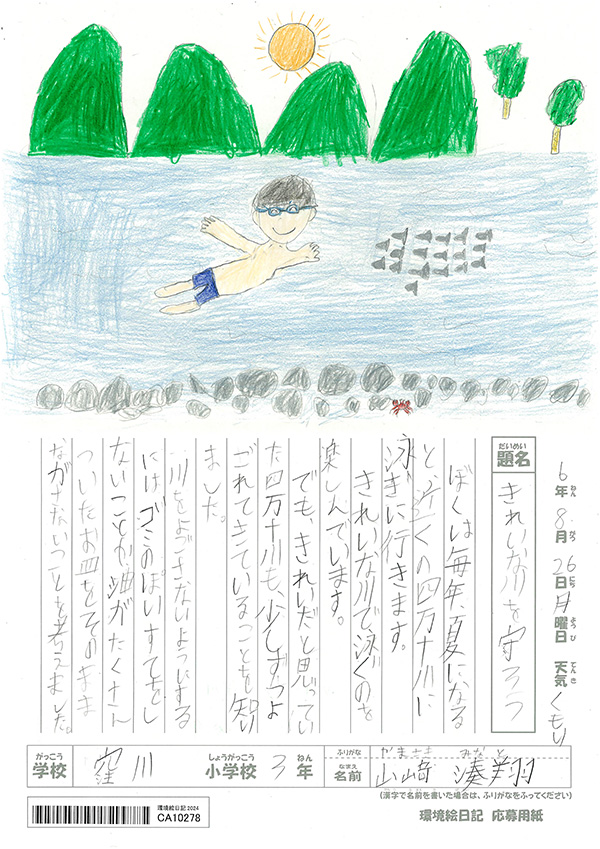 6年 8月 26日 月曜日 天気 くもり
ねん がつ にち ようび てんき
だいめい
題名
きれいな川を守ろう
ぼくは毎年、夏になる
と、近くの四万十川に
泳ぎに行きます。
きれいな川で泳ぐのを
楽しんでいます。
でも、きれいだと思ってい
た四万十川も、少しずつよ
ごれてきていることを知り
ました。
川をよごさないようにする
には、ゴミのぽいすてをし
ないことや油がたくさん
ついたお皿をそのまま
ながさないことを考えました。
がっこう しょうがっこう ねん ふりがな やまさき みなと
学校 窪川 小学校 3年 なまえ 名前 山﨑 湊翔
(漢字で名前を書いた場合は、ふりがなをふってください)
環境絵日記2024
CA10278
環境絵日記 応募用紙